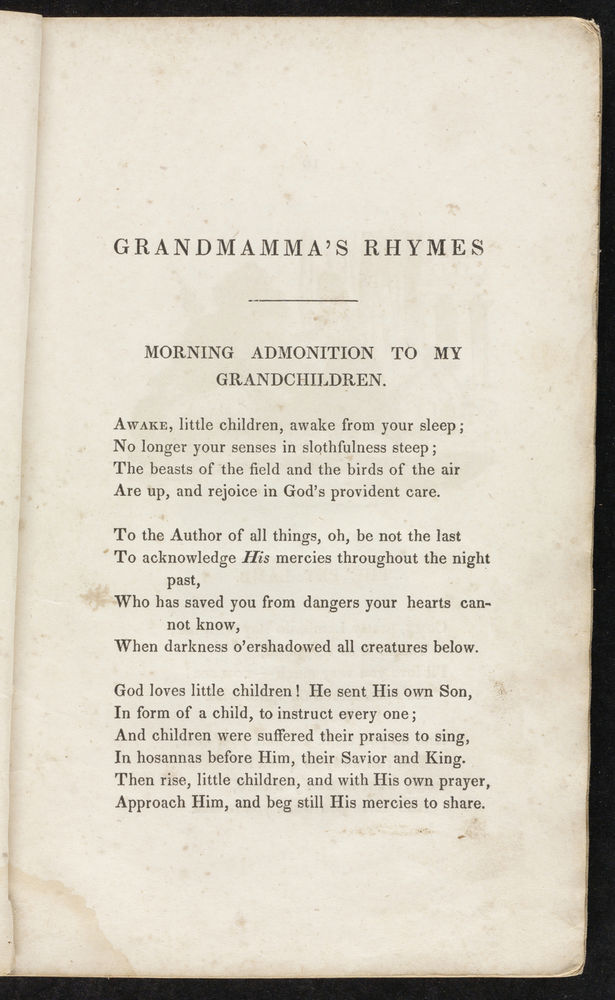 GRANDMAMMA'S RHYMES
MORNING ADMONITION TO MY
GRANDCHILDREN.
AWAKE, little children, awake from your sleep;
No longer your senses in slothfulness steep;
The beasts of the field and the birds of the air
Are up, and rejoice in God's provident care.
To the Author of all things, oh, be not the last
To acknowledge His mercies throughout the night
past,
Who has saved you from dangers your hearts can-
not know,
When darkness o'ershadowed all creatures below.
God loves little children! He sent His own Son,
In form of a child, to instruct every one;
And children were suffered their praises to sing,
In hosannas before Him, their Savior and King.
Then rise, little children, and with His own prayer,
Approach Him, and beg still His mercies to share.